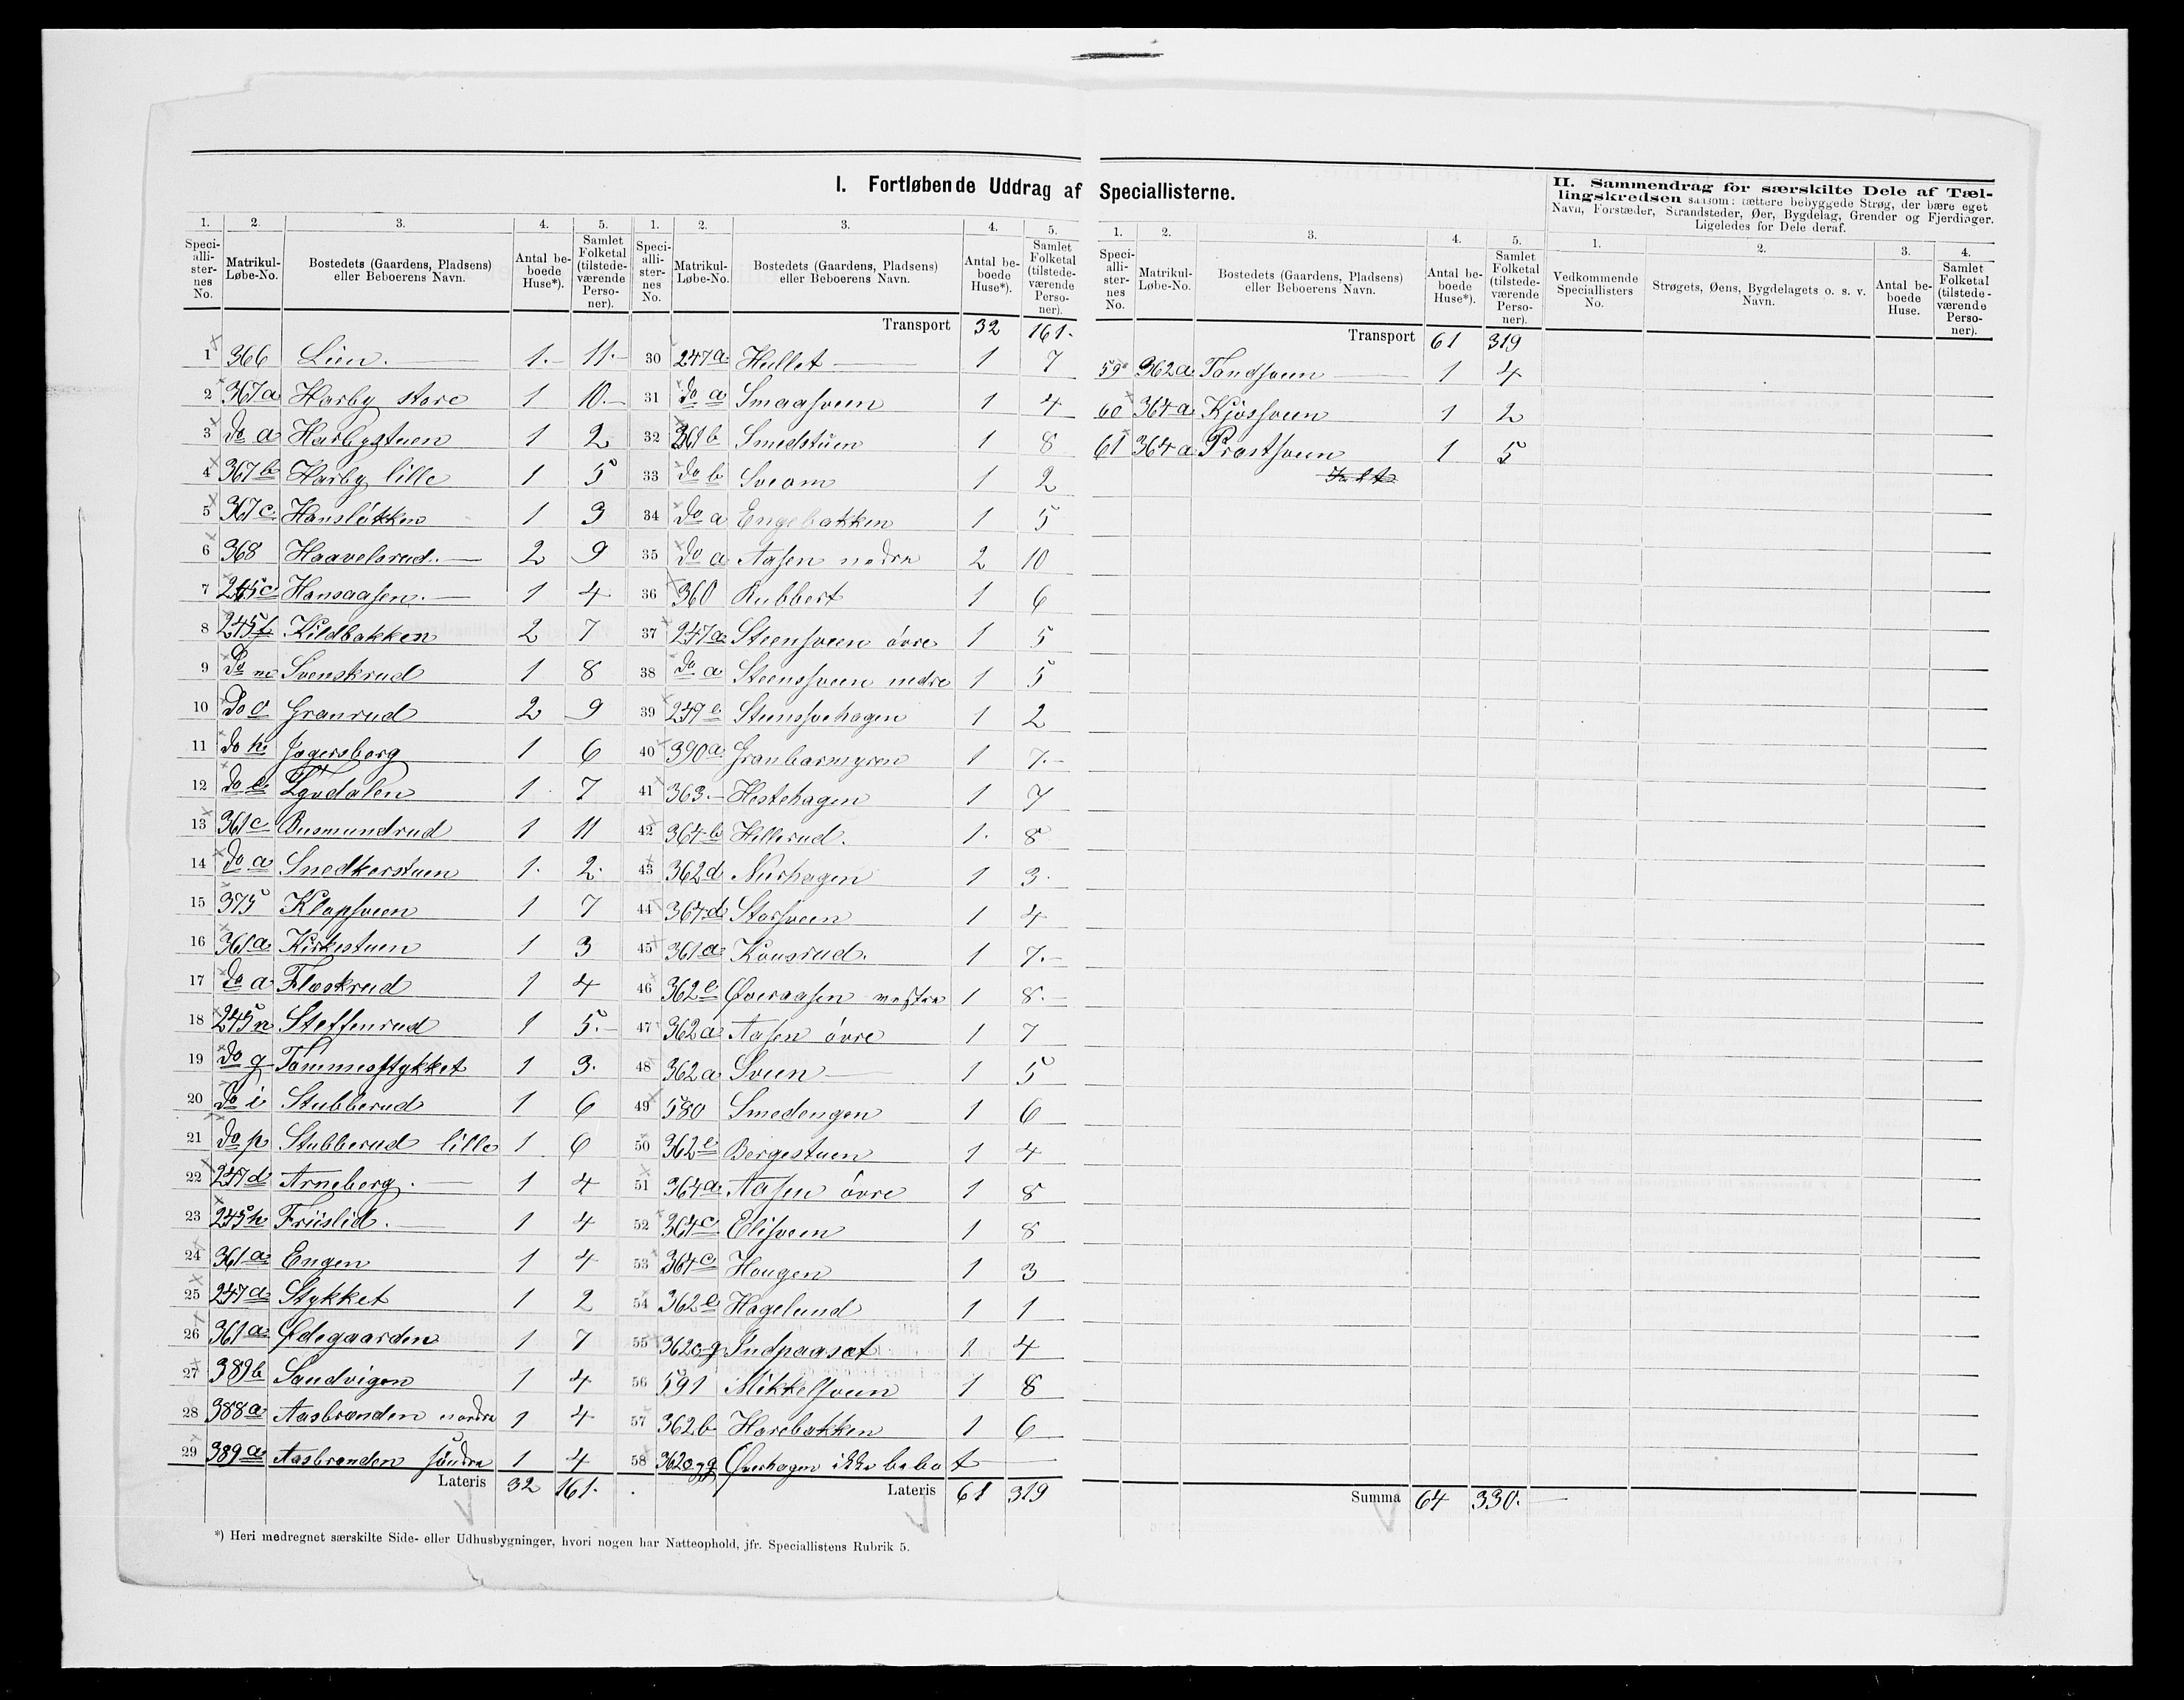 I. Fortløbende Uddrag af Speciallisterne.
II. Sammendrag for særskilte Dele af Tæl-
lingskredsen saasom: tættere bebyggede Strøg, der bære eget
Navn, Forstæder, Strandsteder, Øer, Bygdelag, Grender og Fjerdinger.
Ligeledes for Dele deraf.
1. 2. 3. 4. 5.
Speciallisternes No. Matrikul-Løbe-No. Bostedets (Gaardens, Pladsens) eller Beboerens Navn. Antal beboede Huse*). Samlet Folketal (tilstedeværende Personer).
1 366 Lien. 1. 11.
2 367a Harby store 1 10.
3 do a Harbystuen 1 2
4 367b Harby lille 1 5
5 367c Hansløkken 1 3
6 368 Haavelsrud. 2 9
7 245c Hansaasen. 1 4
8 245f Kildbakken 2 7
9 do m Svenskrud 1 8
10 do o Granrud 2 9
11 do k Jagersborg 1 6
12 do e Lyvdalen 1 7
13 361c Busmundrud 1 11
14 do a Snedkerstuen 1. 2.
15 375 Klapsveen 1 7
16 361a Kirkestuen 1 3
17 do a Flaskrud 1 4
18 245n Steffenrud 1 5.
19 do g Tømmesstykket 1 3.
20 do i Stubberud 1 6
21 do p Stubberud lille 1 6
22 247d Arneberg. 1 4
23 245h Friislid. 1 4
24 361a Engen 1 4
25 247a Stykket 1 2
26 361a Ødegaarden 1 7
27 389b Sandvigen 1 4
28 388a Aasbrænden nordre 1 4
29 389a Aasbrænden søndre 1 4
Lateris 32 161.
1. 2. 3. 4. 5.
Speciallisternes No. Matrikul-Løbe-No. Bostedets (Gaardens, Pladsens) eller Beboerens Navn. Antal beboede Huse*). Samlet Folketal (tilstedeværende Personer).
Transport 32 161.
30 247a Hullet 1 7
31 do a Smaasveen 1 4
32 361b Smedstuen 1 8
33 do b Sveom 1 2
34 do a Engebakken 1 5
35 do a Aasen nedre 2 10
36 360 Rubbert 1 6
37 247a Steensveen øvre 1 5
38 do a Steensveen nedre 1 5
39 247e Steensvehagen 1 2
40 390a Granbærmyren 1 7.
41 363. Hestehagen 1 7
42 364b Hillerud. 1. 8
43 362d Nushagen 1 3.
44 364d Storsveen 1 4
45 361a Konsrud. 1 7.
46 362e Øveraasen vestre 1 8.
47 362a Aasen øvre 1 7
48 362a Sveen 1 5
49 580 Smedengen 1 6
50 362e Bergestuen 1 4
51 364a Aasen øvre 1 8
52 364c Elisveen 1 8
53 364c Hougen 1 3
54 362e Hagelund 1 1
55 362cg Indpaasæt 1 4
56 591 Mikkelsveen 1 8
57 362b Harebakken 1 6
58 362cgg Øverhagen ikke bebot
Lateris 61 319
1. 2. 3. 4. 5.
Speciallisternes No. Matrikul-Løbe-No. Bostedets (Gaardens, Pladsens) eller Beboerens Navn. Antal beboede Huse*). Samlet Folketal (tilstedeværende Personer).
Transport 61 319
59 362a Tandsveen 1 4
60 364a Kjossveen 1 2
61 364a Prastsveen 1 5
Summa 64 330.
1. 2. 3. 4.
Vedkommende Speciallisters No. Strøgets, Øens, Bygdelagets o. s. v. Navn. Antal beboede Huse. Samlet Folketal (tilstedeværende Personer).
*) Heri medregnet særskilte Side- eller Udhusbygninger, hvori nogen har Natteophold, jfr. Speciallistens Rubrik 5.